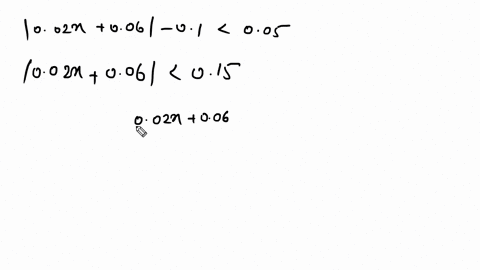 |0.02x + 0.06| - 0.1 < 0.05
|0.02x + 0.06| < 0.15
0.02x + 0.06